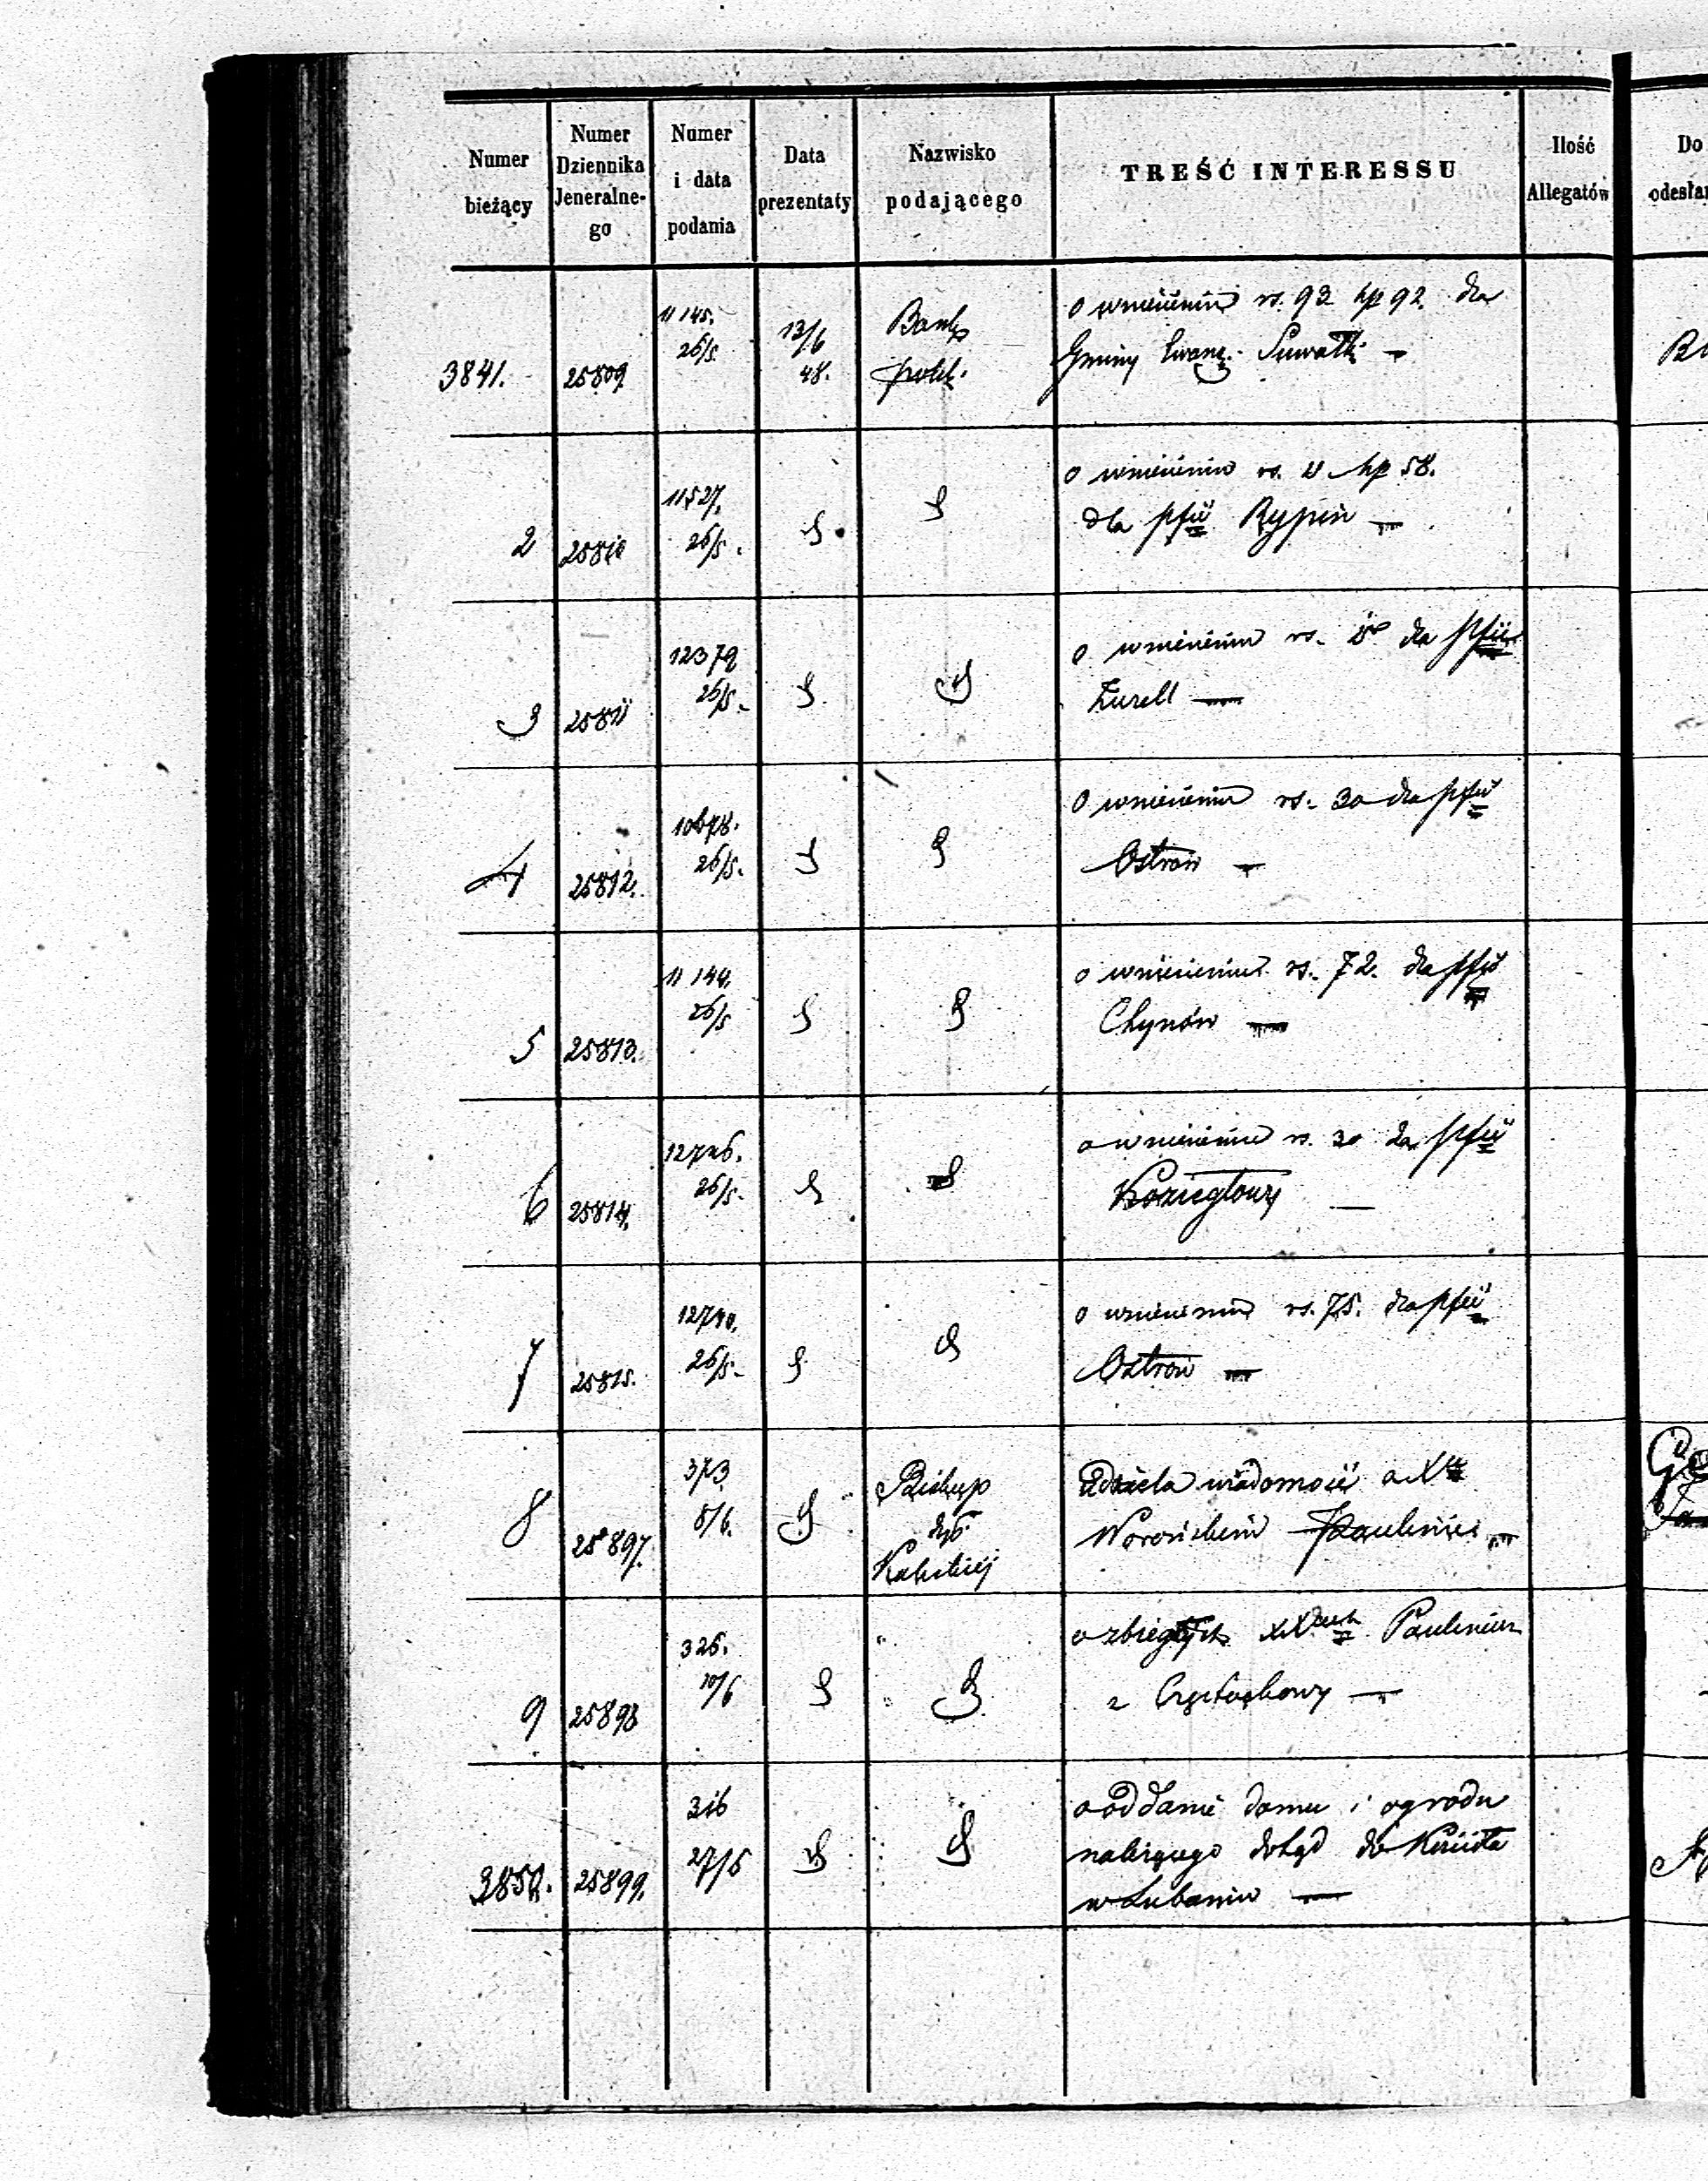 Numer bieżący
Numer Dziennika Jeneralne-go
Numer i data podania
Data prezentaty
Nazwisko podającego
TREŚĆ INTERESSU
Ilość Allegatów
Do
3841. 25809 11145. 26/5 13/6 48. Bank polsk. o wniesieniu rs. 93 kp 92 dla
Gminy Ewang. Suwałki —
2 25810 11527. 26/5. o wniesieniu rs. kp 58.
dla pfii Rypin —
3 25811 12379 26/5. o wniesieniu rs. dla pfii
4 25812. 10678. 26/5. o wniesieniu rs. 30 dla pfii
Ostrow —
5 25813. 11144. 26/5 o wniesieniu rs. 72. dla pfii
Chynów —
6 25814. 26/5. o wniesieniu rs. 30 dla pfii
Koziegłowy —
7 25815. 26/5. o wniesieniu rs. 75. dla pfii
Ostrow —
8 25897. 373 8/6. Biskup dyo. Kaliskiej Udziela wiadomość o X
Paulinie —
9 25898 326. 10/6 o zbiegłych XX Paulinów
z Częstochowy —
3850. 25899. 316 27/5 o oddanie domu i ogrodu
należącego dotąd do Kościoła
w Lubaniu —